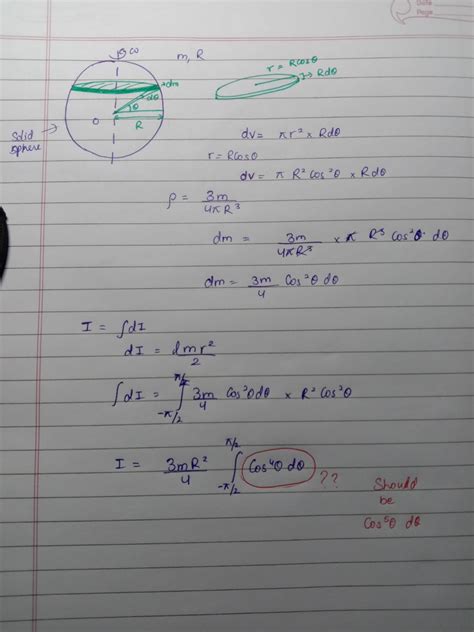 Date
Page
ω
m, R
dm
dθ
θ
O
R
Solid
sphere
r = Rcosθ
Rdθ
dv = πr² × Rdθ
r = Rcosθ
dv = π R² cos²θ × Rdθ
ρ = 3m / 4πR³
dm = 3m / 4πR³ × π R³ cos²θ dθ
dm = 3m / 4 cos²θ dθ
I = ∫dI
dI = dmr² / 2
∫dI = ∫_{-π/2}^{π/2} 3m / 4 cos²θdθ × R²cos²θ
I = 3mR² / 4 ∫_{-π/2}^{π/2} cos⁴θ dθ ??
Should
be
cos⁵θ dθ